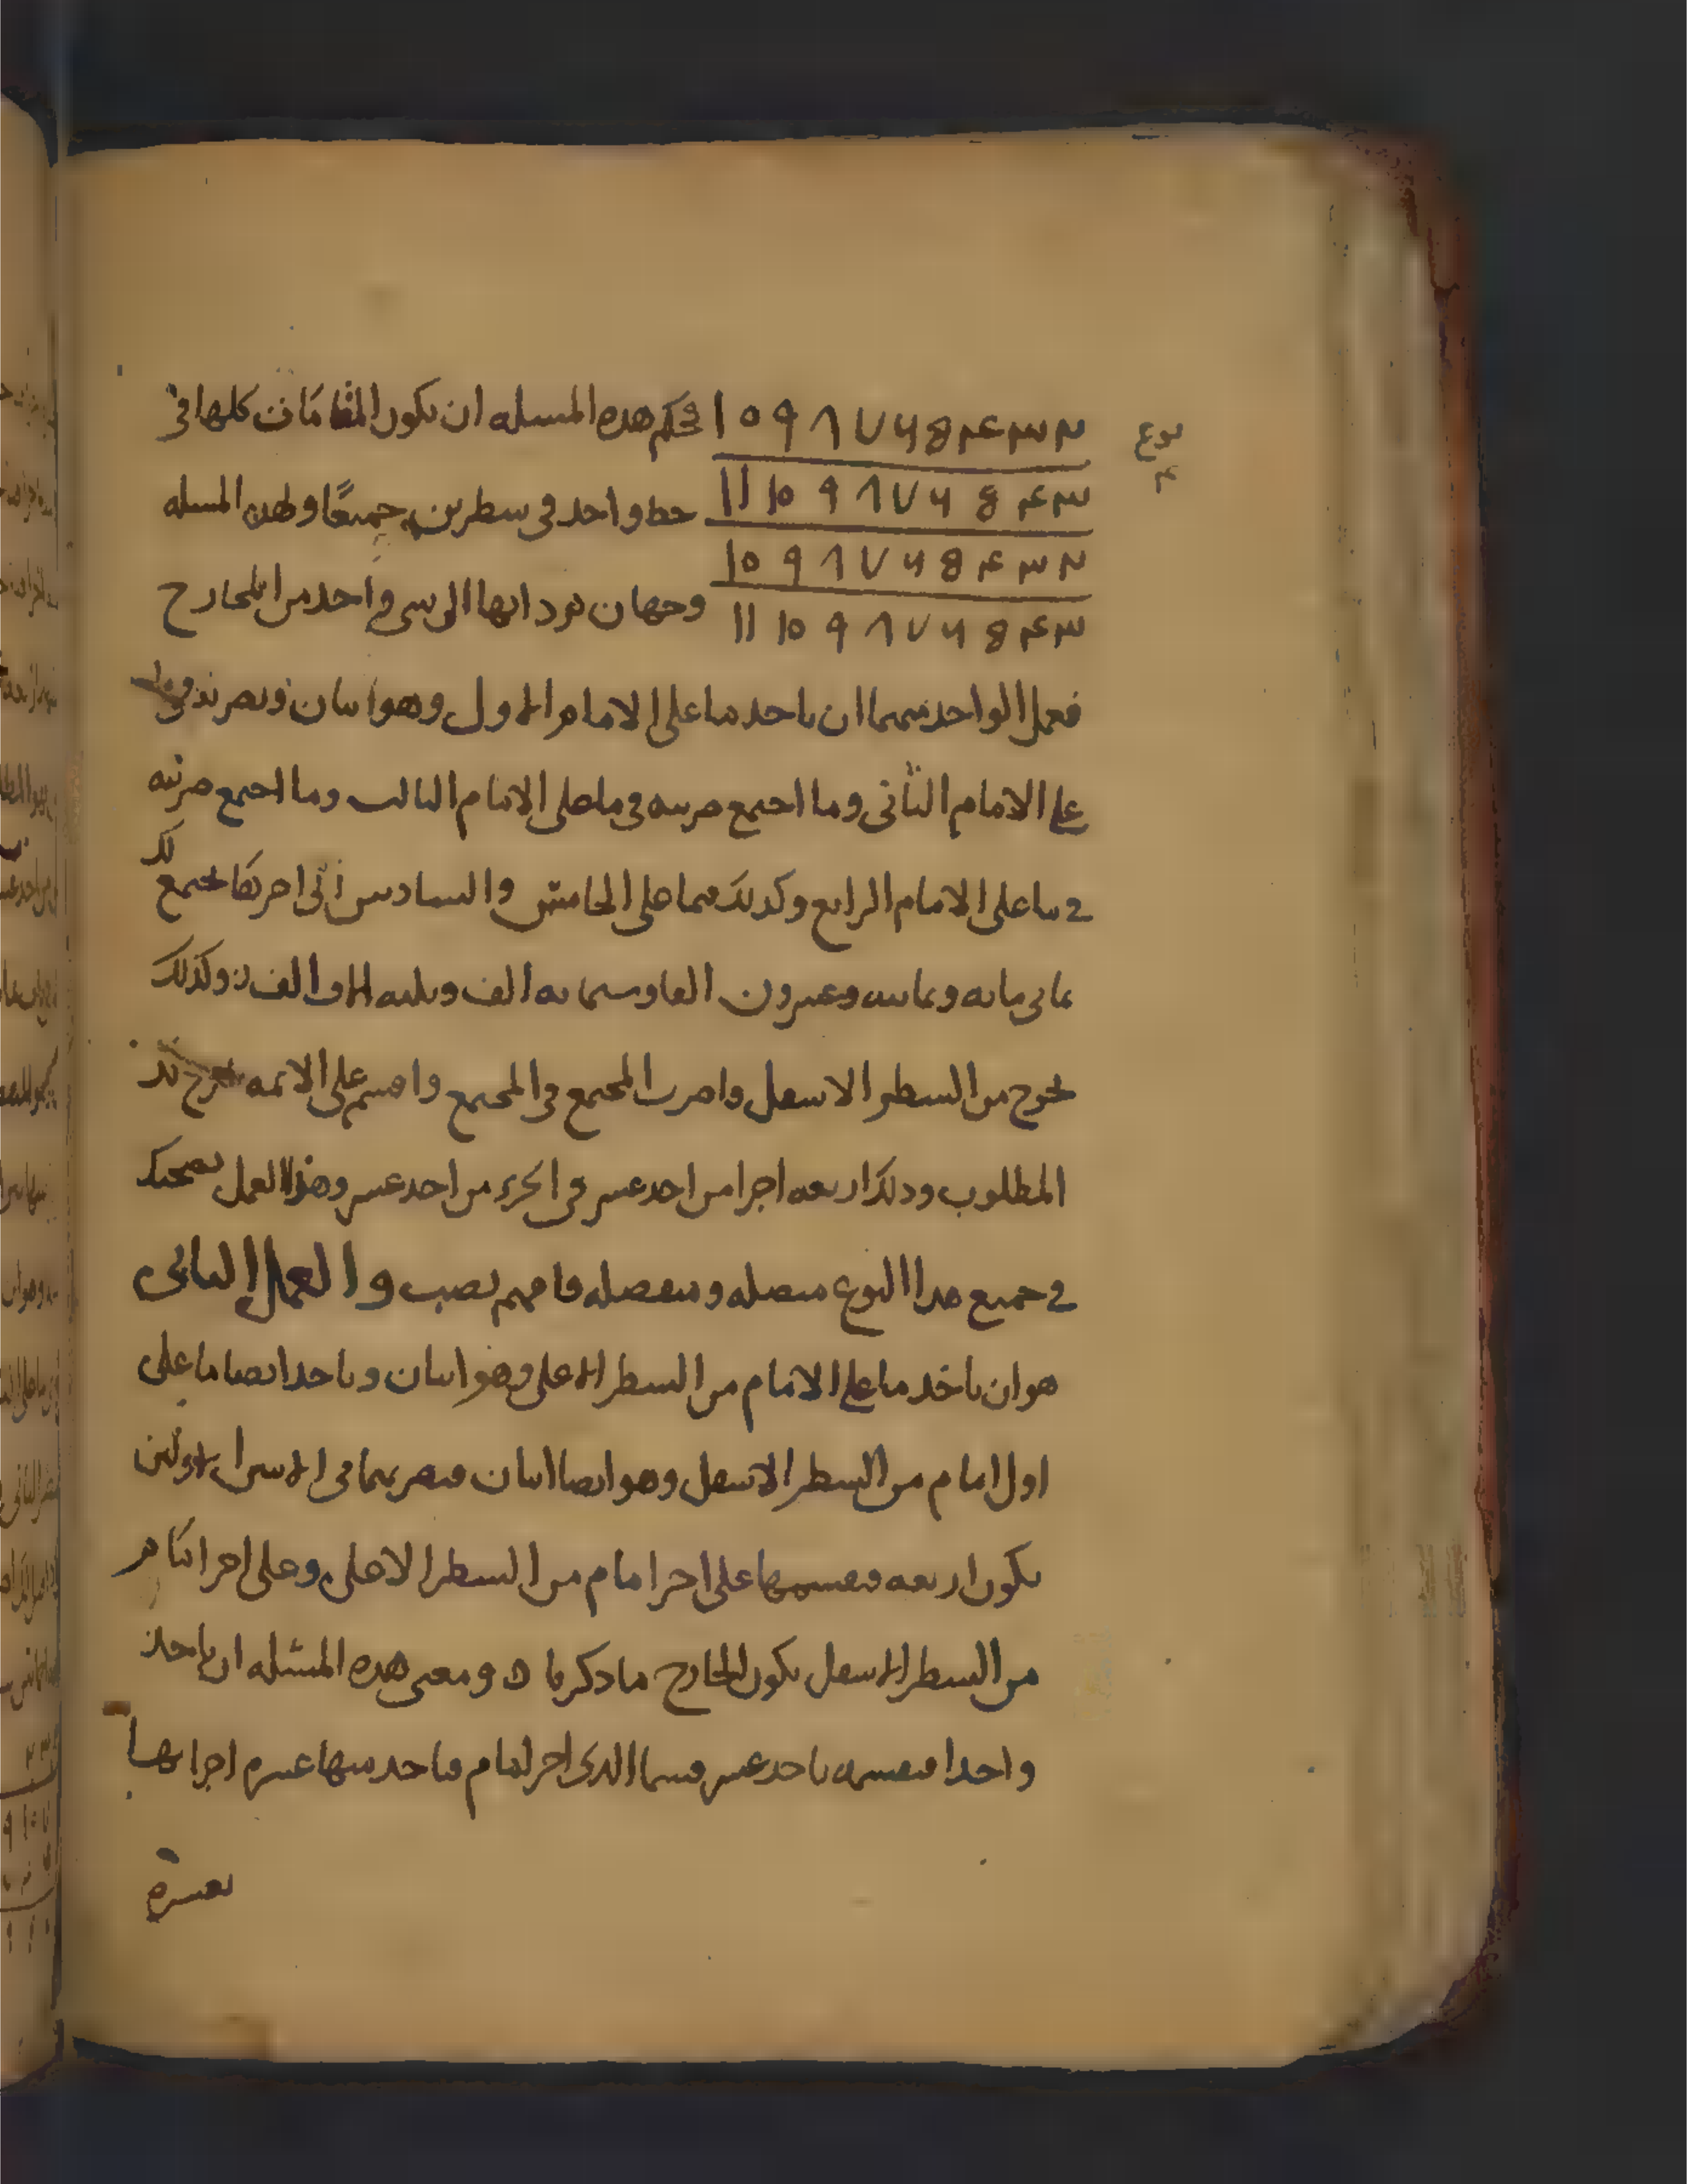 نوع
٢ ٣ ٤ ٥ ٦ ٧ ٨ ٩ ١٠ فحكم هذه المسله ان يكون المقامات كلها في
٣ ٤ ٥ ٦ ٧ ٨ ٩ ١٠ ١١ خط واحد في سطرين جميعًا ولهذه المسله
٢ ٣ ٤ ٥ ٦ ٧ ٨ ٩ ١٠
٣ ٤ ٥ ٦ ٧ ٨ ٩ ١٠ ١١ وجهان يرد ابها الى سى واحد من المخارج
فعمل الواحد منهما ان ياخد ما على الامام الاول وهو اثنان وتضربه في
على الامام الثاني وما اجتمع ضربته في ما على الامام الثالث وما اجتمع ضربته
في ما على الامام الرابع وكذلك فيما على الخامس والسادس الى اخرها يجتمع لك
ثماني مايه وثمانيه وعشرون الفا وستمايه الف وثلثه الاف الف وكذلك
يخرج من السطر الاسفل واضرب المجتمع في المجتمع واقسم على الائمه يخرج لك
المطلوب وذلك اربعه اجزا من احد عشر في الجزء من احد عشر وهذا العمل يصحبك
في جميع هدا النوع متصله ومنفصله فافهم تصب والعمل الثاني
هو ان ياخد ما على الامام من السطر الاعلى وهو اثنان وياخد ايضا ما على
اول امام من السطر الاسفل وهو ايضا اثنان فتضربهما في الاولين
يكون اربعه فتقسمها على اخر امام من السطر الاعلى وعلى اخر امام
من السطر الاسفل يكون الخارج ما ذكرنا ه ومعنى هذه المسئله ان ياخذ
واحدا فتقسمه باحد عشر قسما الذي اخر امام فتاخد منها عشره اجزا بها
بعشرة